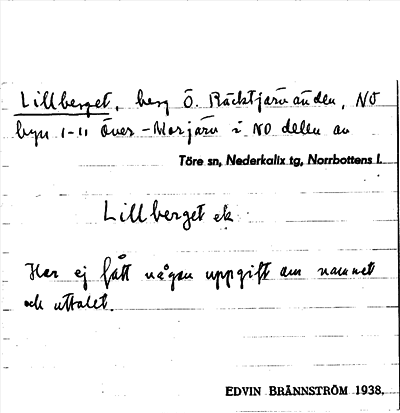 Lillberget, berg Ö. Räcktjärvänden, NO
byn 1-11 Över-Morjärv i NO delen av
Töre sn, Nederkalix tg, Norrbottens l.
Lillberget ek
Har ej fått någon uppgift om namnet
och uttalet.
EDVIN BRÄNNSTRÖM 1938.